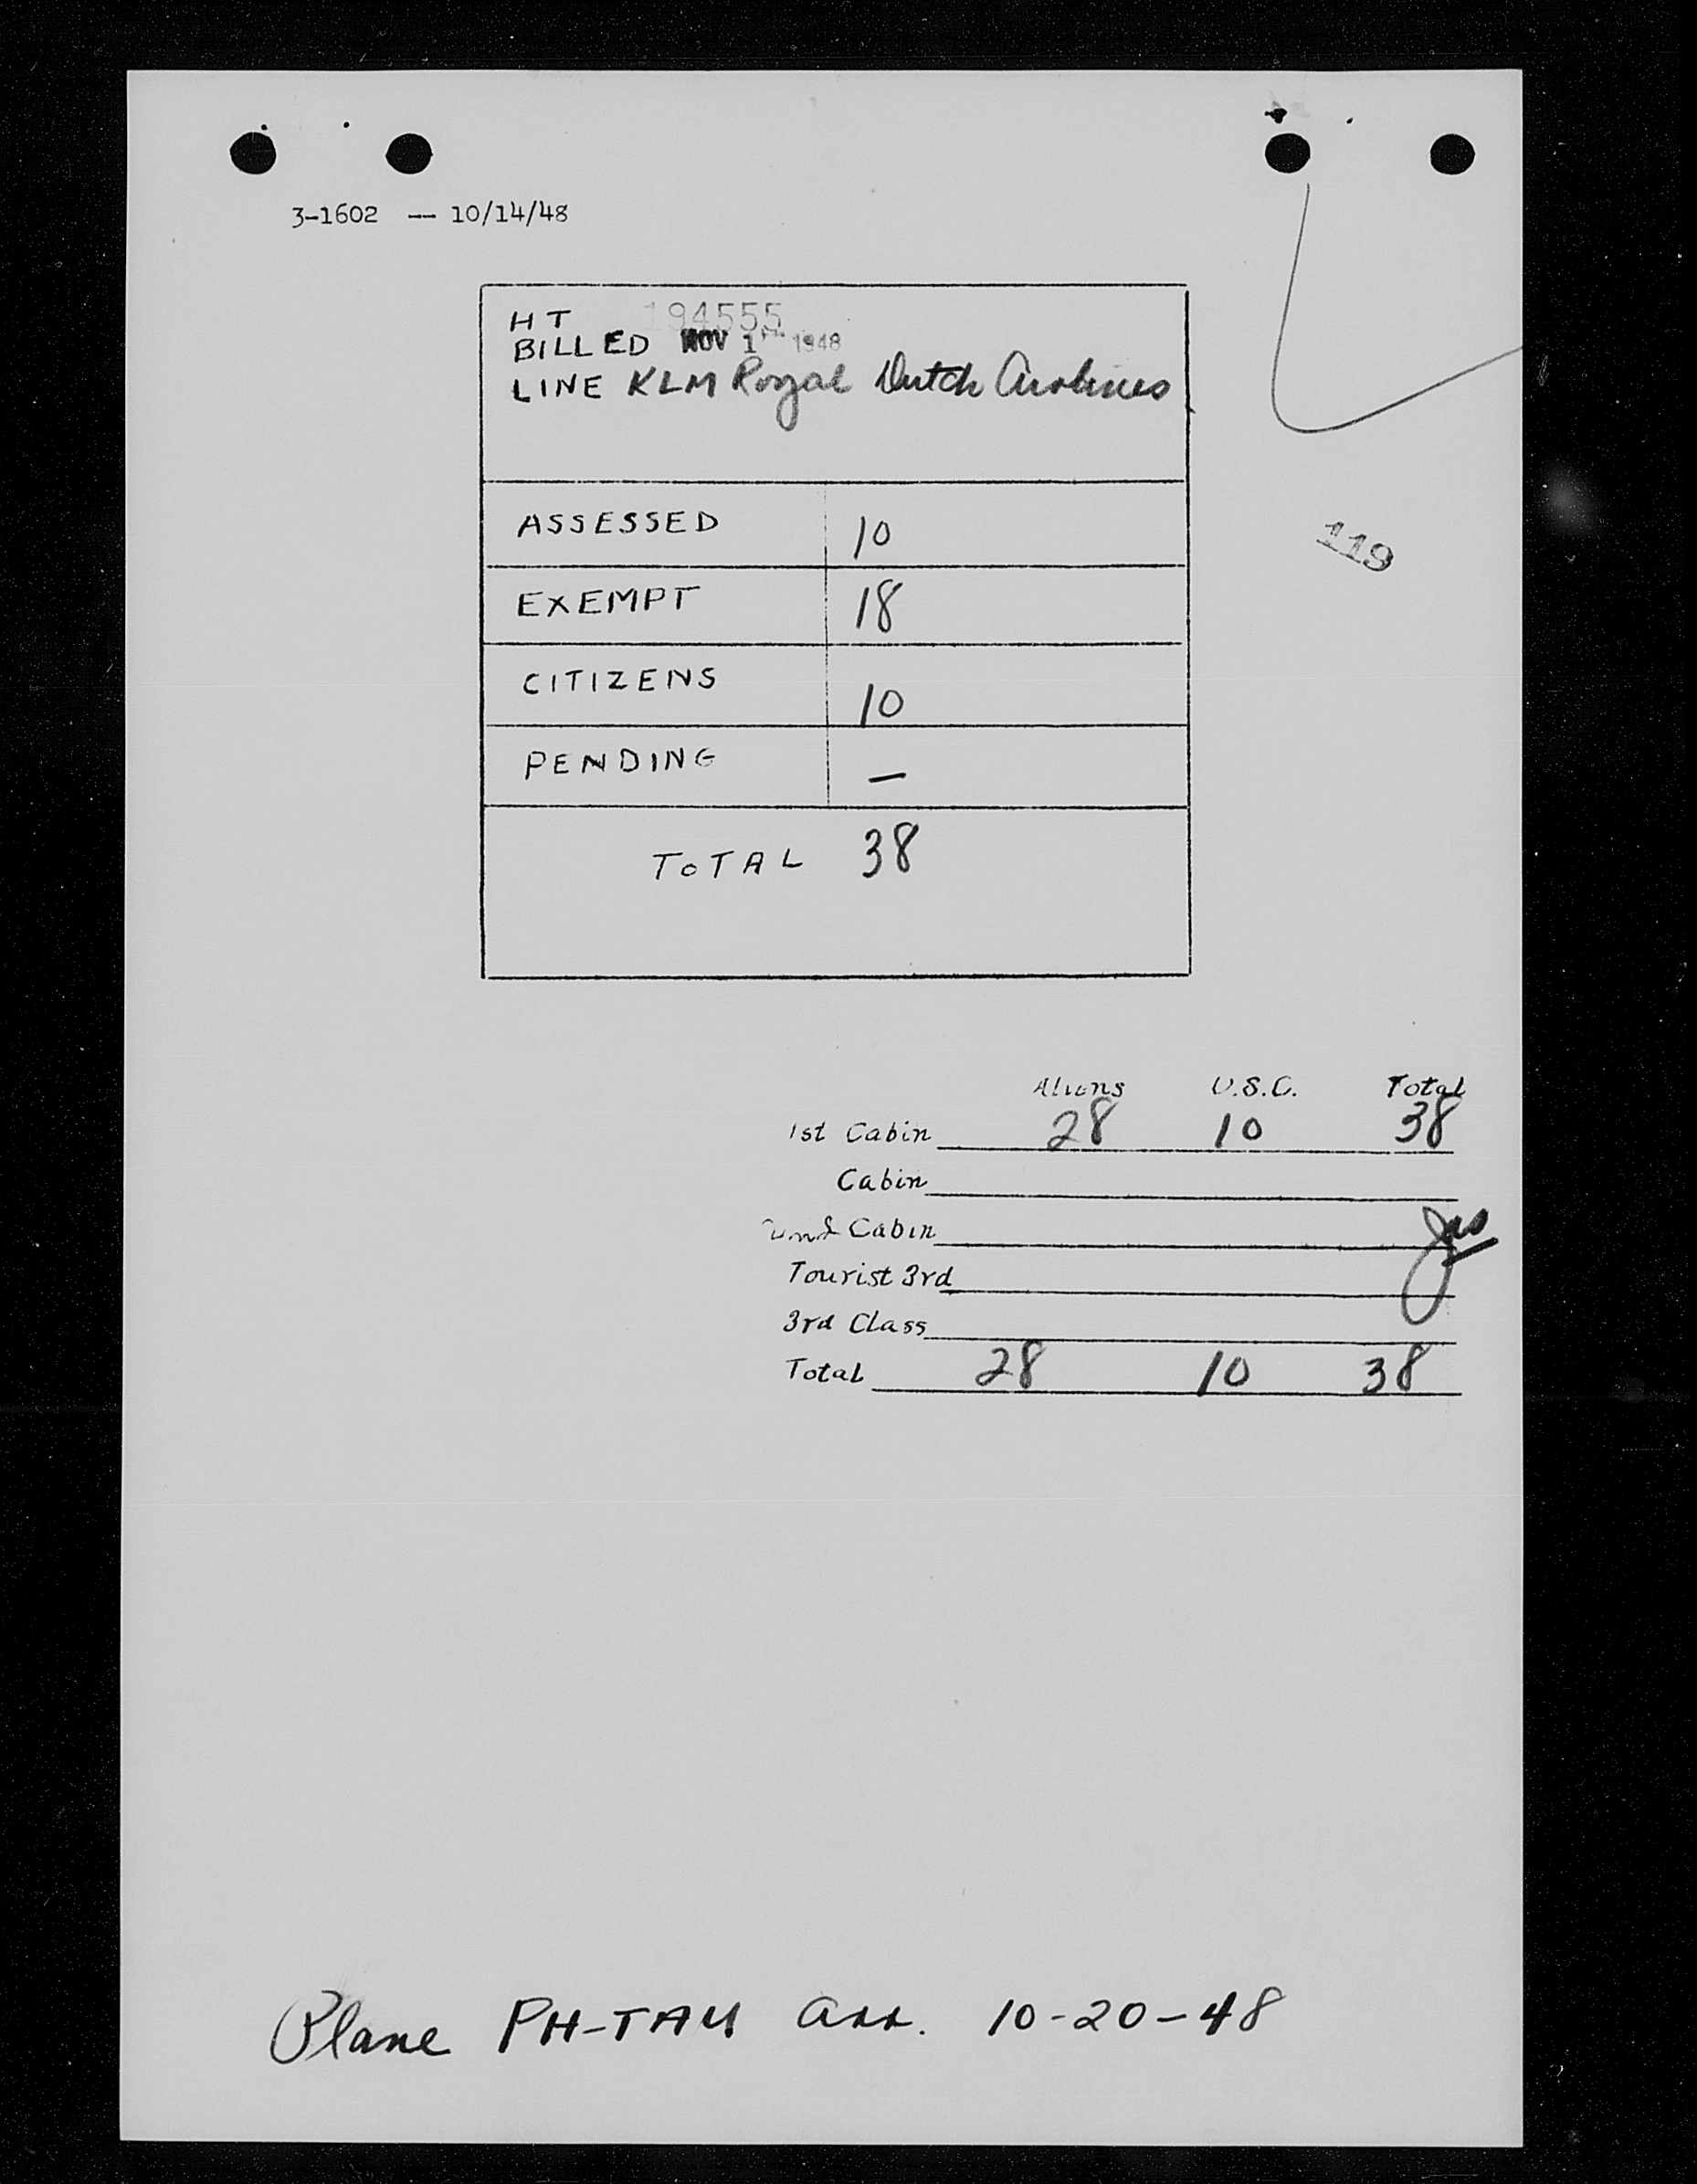 3-1602 -- 10/14/48
HT 194555
BILLED NOV 1 1948
LINE KLM Royal Dutch Airlines
119
ASSESSED 10
EXEMPT 18
CITIZENS 10
PENDING —
TOTAL 38
Aliens U.S.C. Total
1st Cabin 28 10 38
Cabin
Cabin
Tourist 3rd
3rd Class
Total 28 10 38
Plane PH-TAU arr. 10-20-48